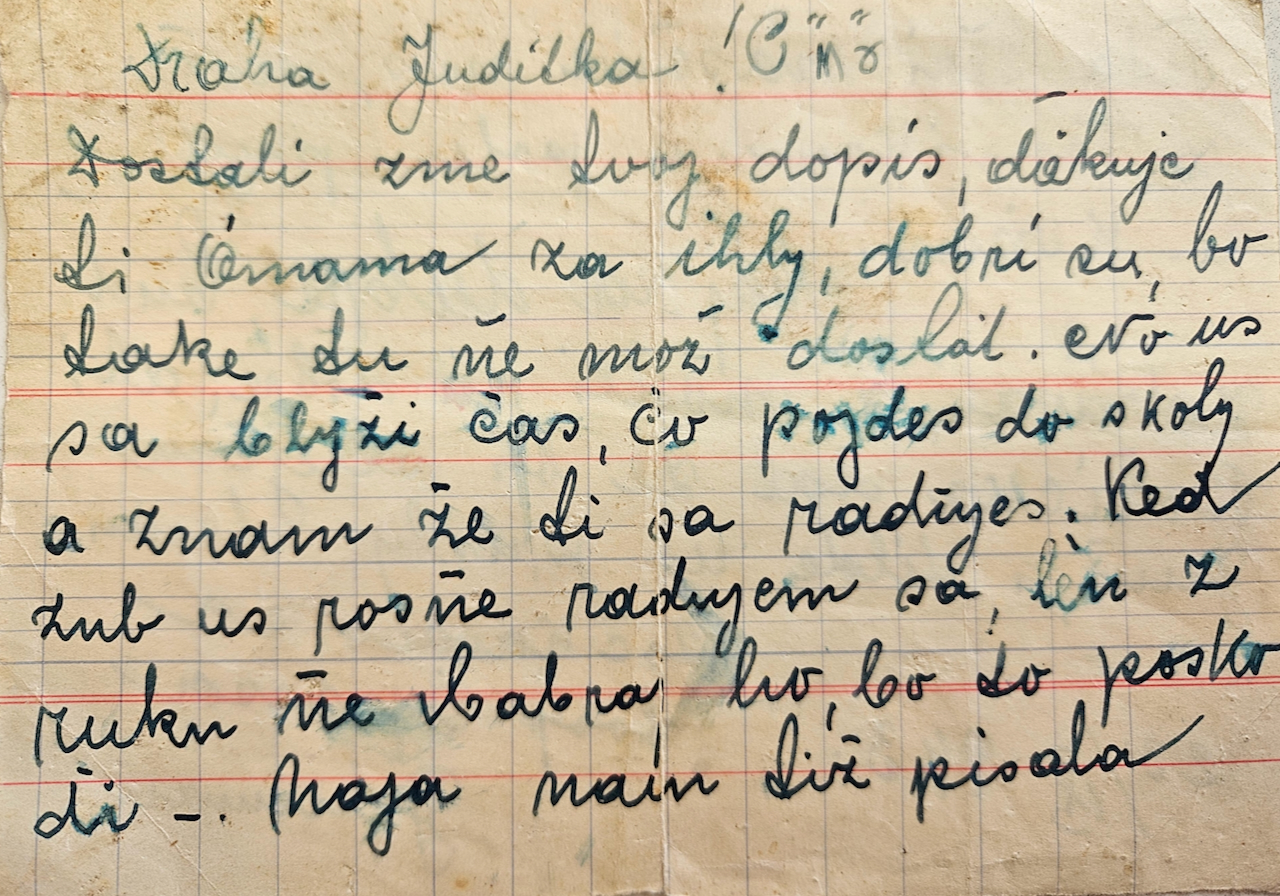 Draha Juditka!
Dostali zme tvoj dopis, ďäkuje
ti Ómama za ihly, dobrí su, bo
take tu ňe mož dostát. No us
sa blyži čas, čo pojdes do skoly
a znam že ti sa radujes. Keď
zub us rosňe radujem sa, len z
ruku ňe babra ho, bo to posko
ďi -. Maja nam tiž pisala